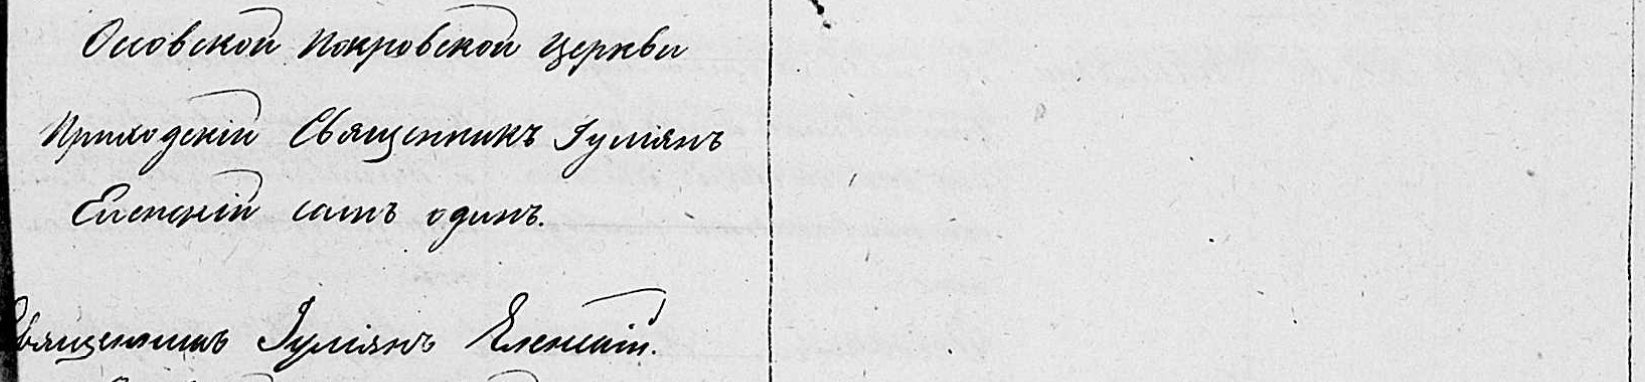 Осовской Покровской Церкви
Приходскій Священникъ Іуліянъ
Еленскій самъ одинъ.
Священникъ Іуліянъ Еленскій.